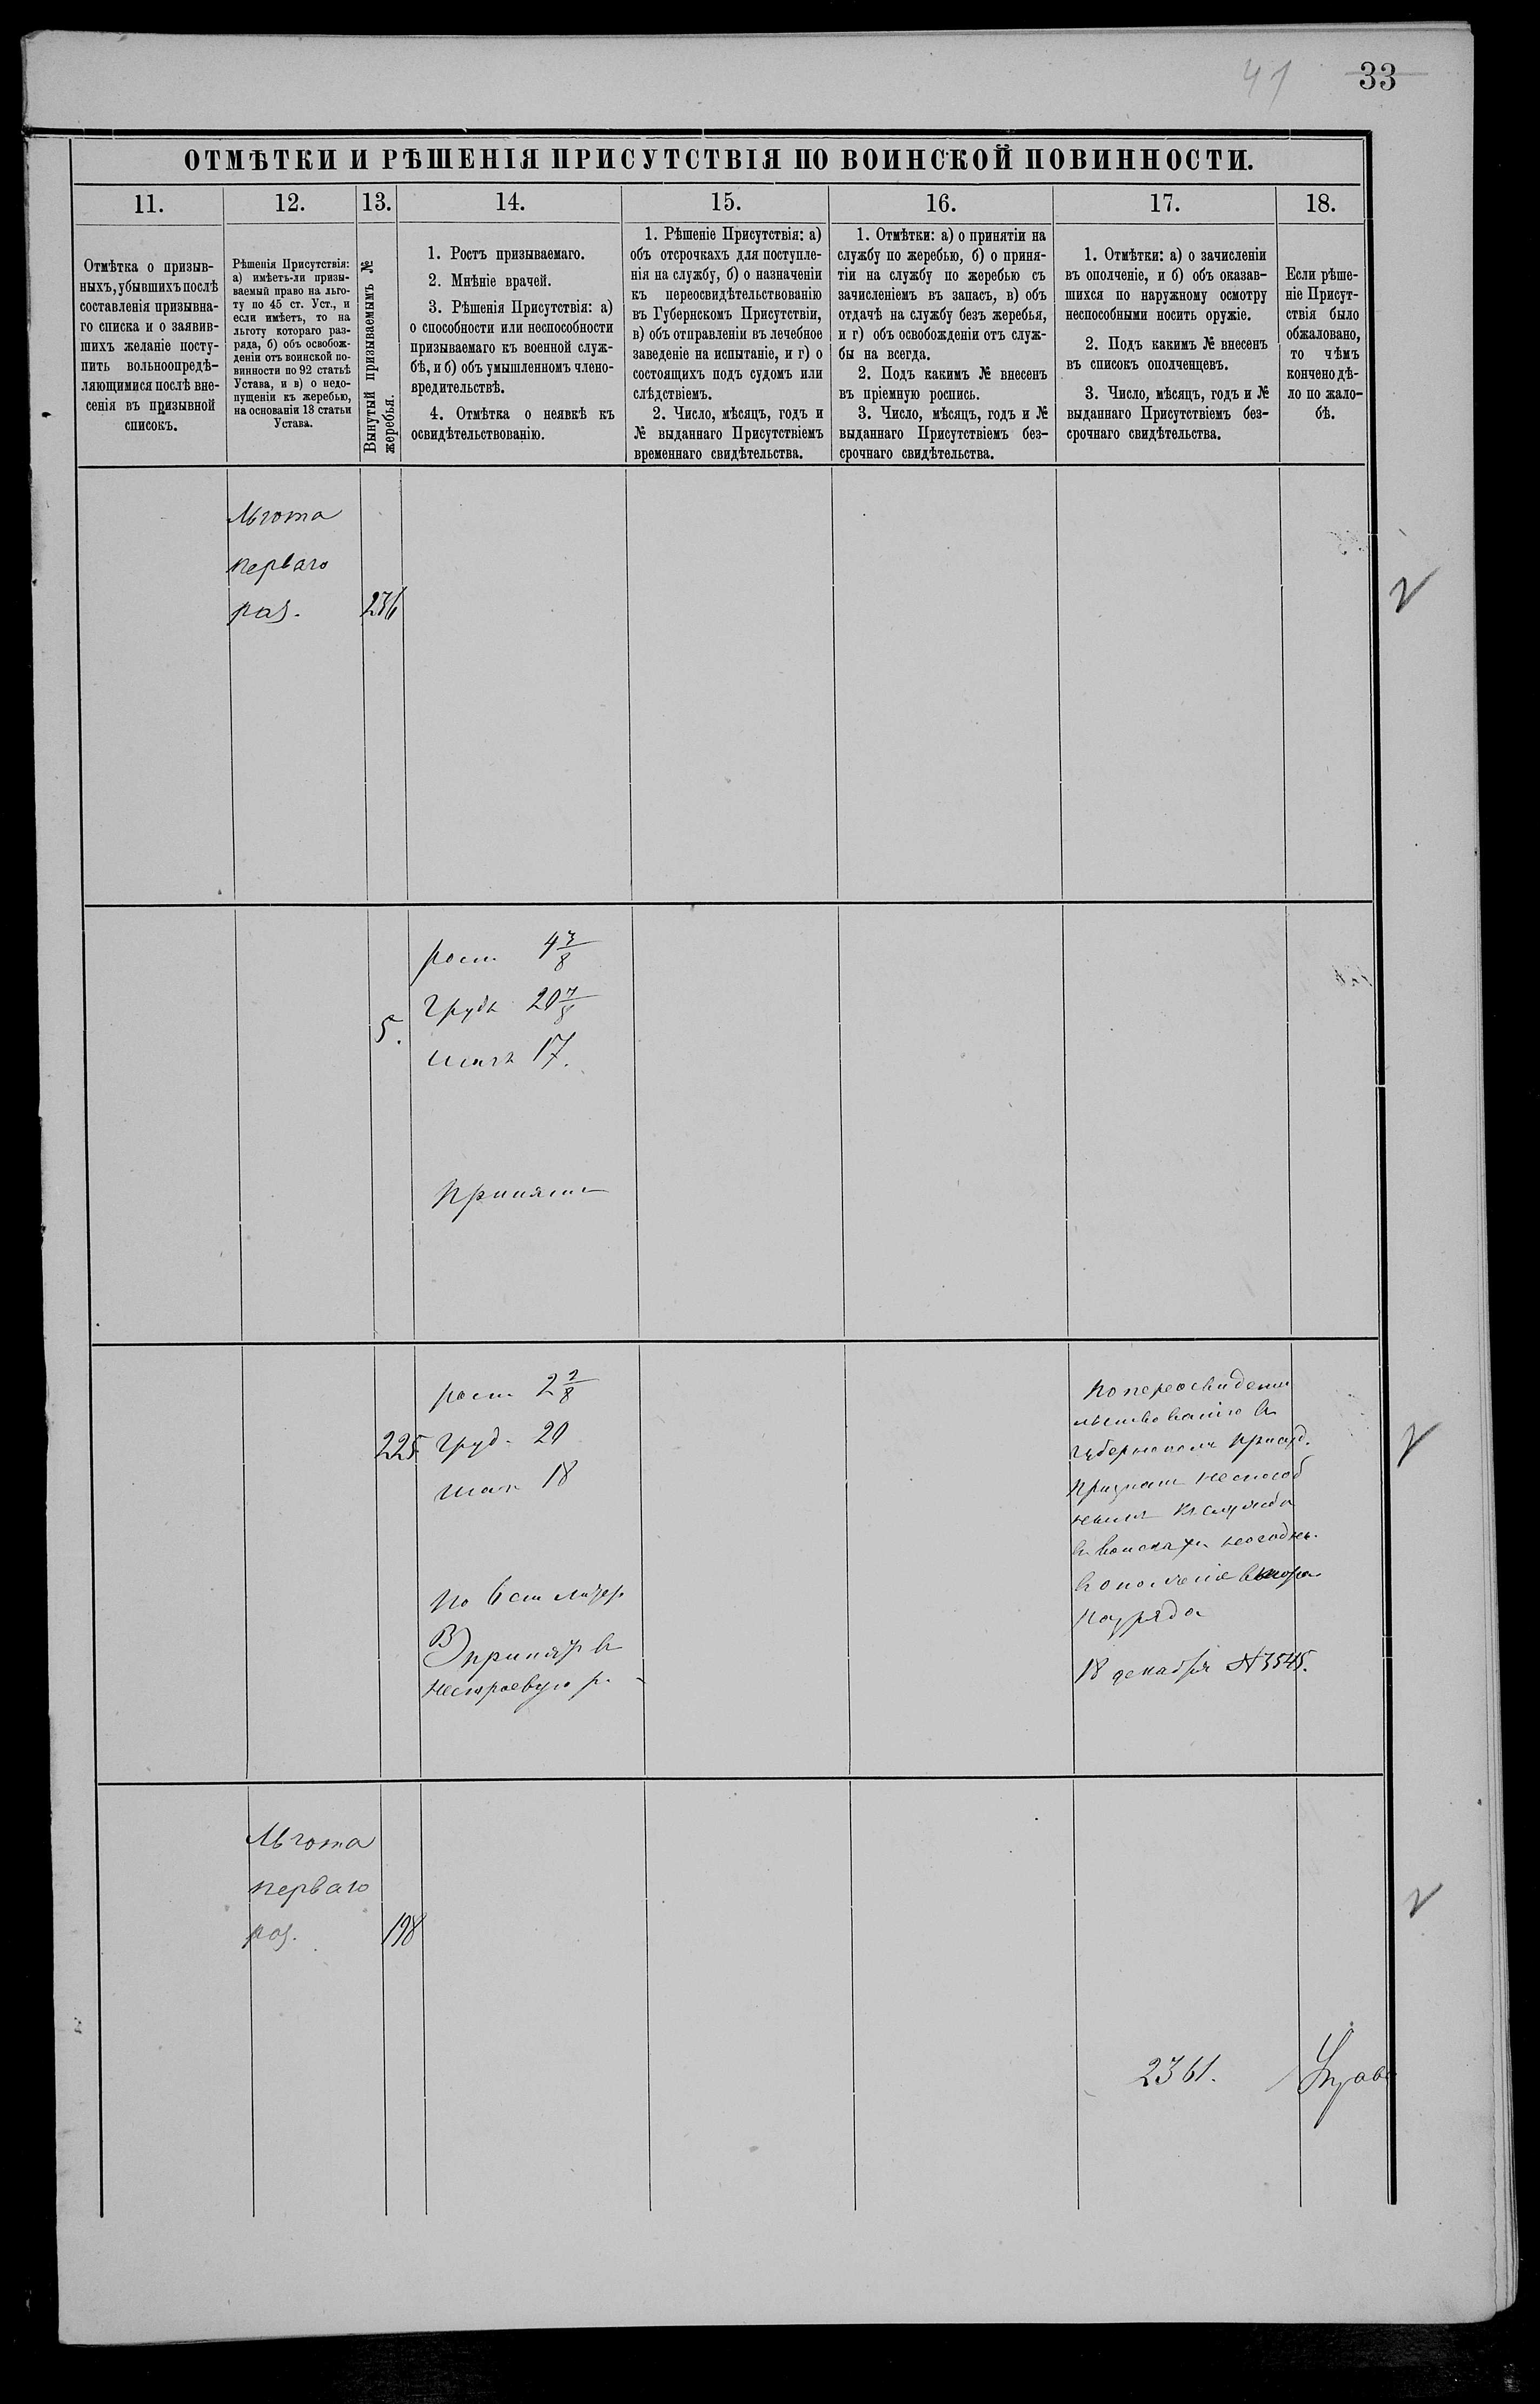 41 33
ОТМѢТКИ И РѢШЕНІЯ ПРИСУТСТВІЯ ПО ВОИНСКОЙ ПОВИННОСТИ.
11.
Отмѣтка о призыв-
ныхъ, убывшихъ послѣ
составленія призывна-
го списка и о заявив-
шихъ желаніе посту-
пить вольноопредѣ-
ляющимися послѣ вне-
сенія въ призывной
списокъ.
12.
Рѣшенія Присутствія:
а) имѣетъ-ли призы-
ваемый право на льго-
ту по 45 ст. Уст., и
если имѣетъ, то на
льготу котораго раз-
ряда, б) объ освобож-
деніи отъ воинской по-
винности по 92 статьѣ
Устава, и в) о недо-
пущеніи къ жеребью,
на основаніи 13 статьи
Устава.
13.
Вынутый призываемымъ №
жеребья.
14.
1. Ростъ призываемаго.
2. Мнѣніе врачей.
3. Рѣшенія Присутствія: а)
о способности или неспособности
призываемаго къ военной служ-
бѣ, и б) объ умышленномъ члено-
вредительствѣ.
4. Отмѣтка о неявкѣ къ
освидѣтельствованію.
15.
1. Рѣшеніе Присутствія: а)
объ отсрочкахъ для поступле-
нія на службу, б) о назначеніи
къ переосвидѣтельствованію
въ Губернскомъ Присутствіи,
в) объ отправленіи въ лечебное
заведеніе на испытаніе, и г) о
состоящихъ подъ судомъ или
слѣдствіемъ.
2. Число, мѣсяцъ, годъ и
№ выданнаго Присутствіемъ
временнаго свидѣтельства.
16.
1. Отмѣтки: а) о принятіи на
службу по жеребью, б) о приня-
тіи на службу по жеребью съ
зачисленіемъ въ запасъ, в) объ
отдачѣ на службу безъ жеребья,
и г) объ освобожденіи отъ служ-
бы на всегда.
2. Подъ какимъ № внесенъ
въ пріемную роспись.
3. Число, мѣсяцъ, годъ и №
выданнаго Присутствіемъ без-
срочнаго свидѣтельства.
17.
1. Отмѣтки: а) о зачисленіи
въ ополченіе, и б) объ оказав-
шихся по наружному осмотру
неспособными носить оружіе.
2. Подъ какимъ № внесенъ
въ списокъ ополченцевъ.
3. Число, мѣсяцъ, годъ и №
выданнаго Присутствіемъ без-
срочнаго свидѣтельства.
18.
Если рѣше-
ніе Присут-
ствія было
обжаловано,
то чѣмъ
кончено дѣ-
ло по жало-
бѣ.
Льгота
перваго
раз. 236
5.
рост 4 3/8
Грудь 20 7/8
17.
принят
225
рост 2 2/8
Груд. 20
18
По 6 ст
В принят в
нестроевую р.
По переосвидете
льствованию в
Губернском присуд.
признан неспособ
ным к службе
в войсках
в ополчение втора
разряда
18 декабря № 3545.
Льгота
перваго
раз. 198
2361.